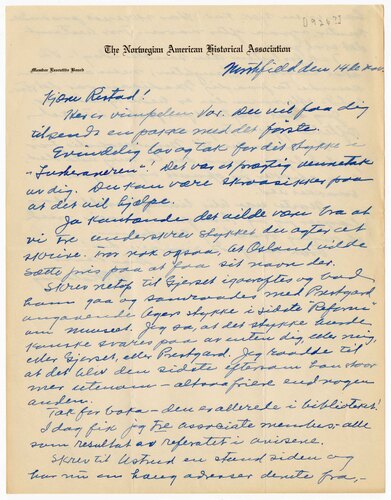 The Norwegian American Historical Association
Member Executive Board
Northfield den 14de nov.
Kjære Ristad!
Her er vimpelen vor. Du vil faa dig
tilsendt en pakke med det første.
Evindelig lov og tak for dit stykke i
"Lutheraneren"! Det var et prægtig vennetak
av dig. Du kan være skraasikker paa
at det vil hjælpe.
Ja hantande det vilde være bra at
vi tre underskrev stykket du agter at
skrive. Tror nok ogsaa, at Osland vilde
sætte pris paa at faa sit navn der.
Skrev netop til Gjerset igaaraftes og bad
ham gaa og samraader med Prestgard
angaaende Agers stykke i sidste "Reform"
om museet. Jeg sa, at det stykke burde
kanske svares paa av enten dig, eller mig,
eller Gjerset, eller Prestgard. Jeg raadde til
at det blev den sidste eftersom han stod
mer utenom - altsaa friere end nogen
anden.
Tak for boka - den er allerede i biblioteket!
I dag fik jeg tre associate members - alle
som resultat av referatet i avisene.
Skrev til Astrid en stund siden og
har nu en haug adresser dernte fra, -